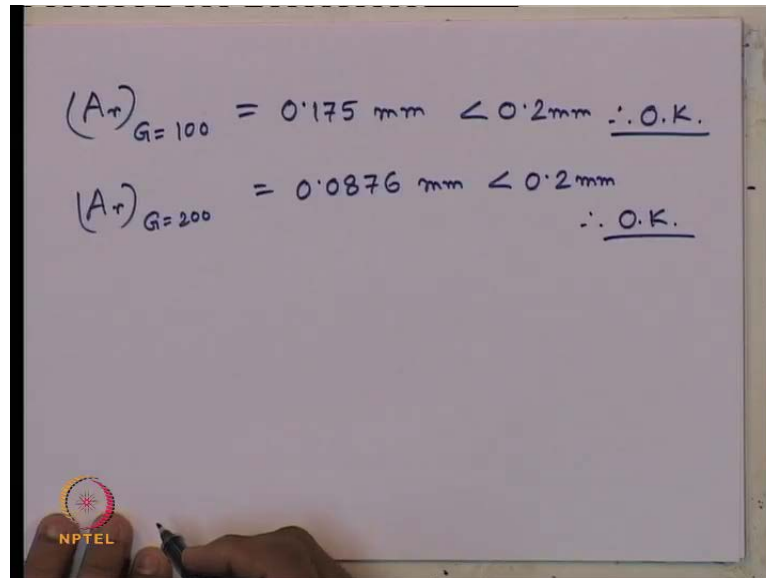 (Ar) G= 100 = 0.175 mm < 0.2mm ∴ O.K.
(Ar) G= 200 = 0.0876 mm < 0.2mm
∴ O.K.
NPTEL